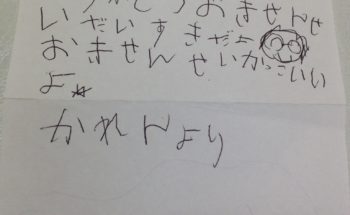 がとうおきせんせ
いだいすきだよ
おきせんせいかっこいい
よ☆
かれんより